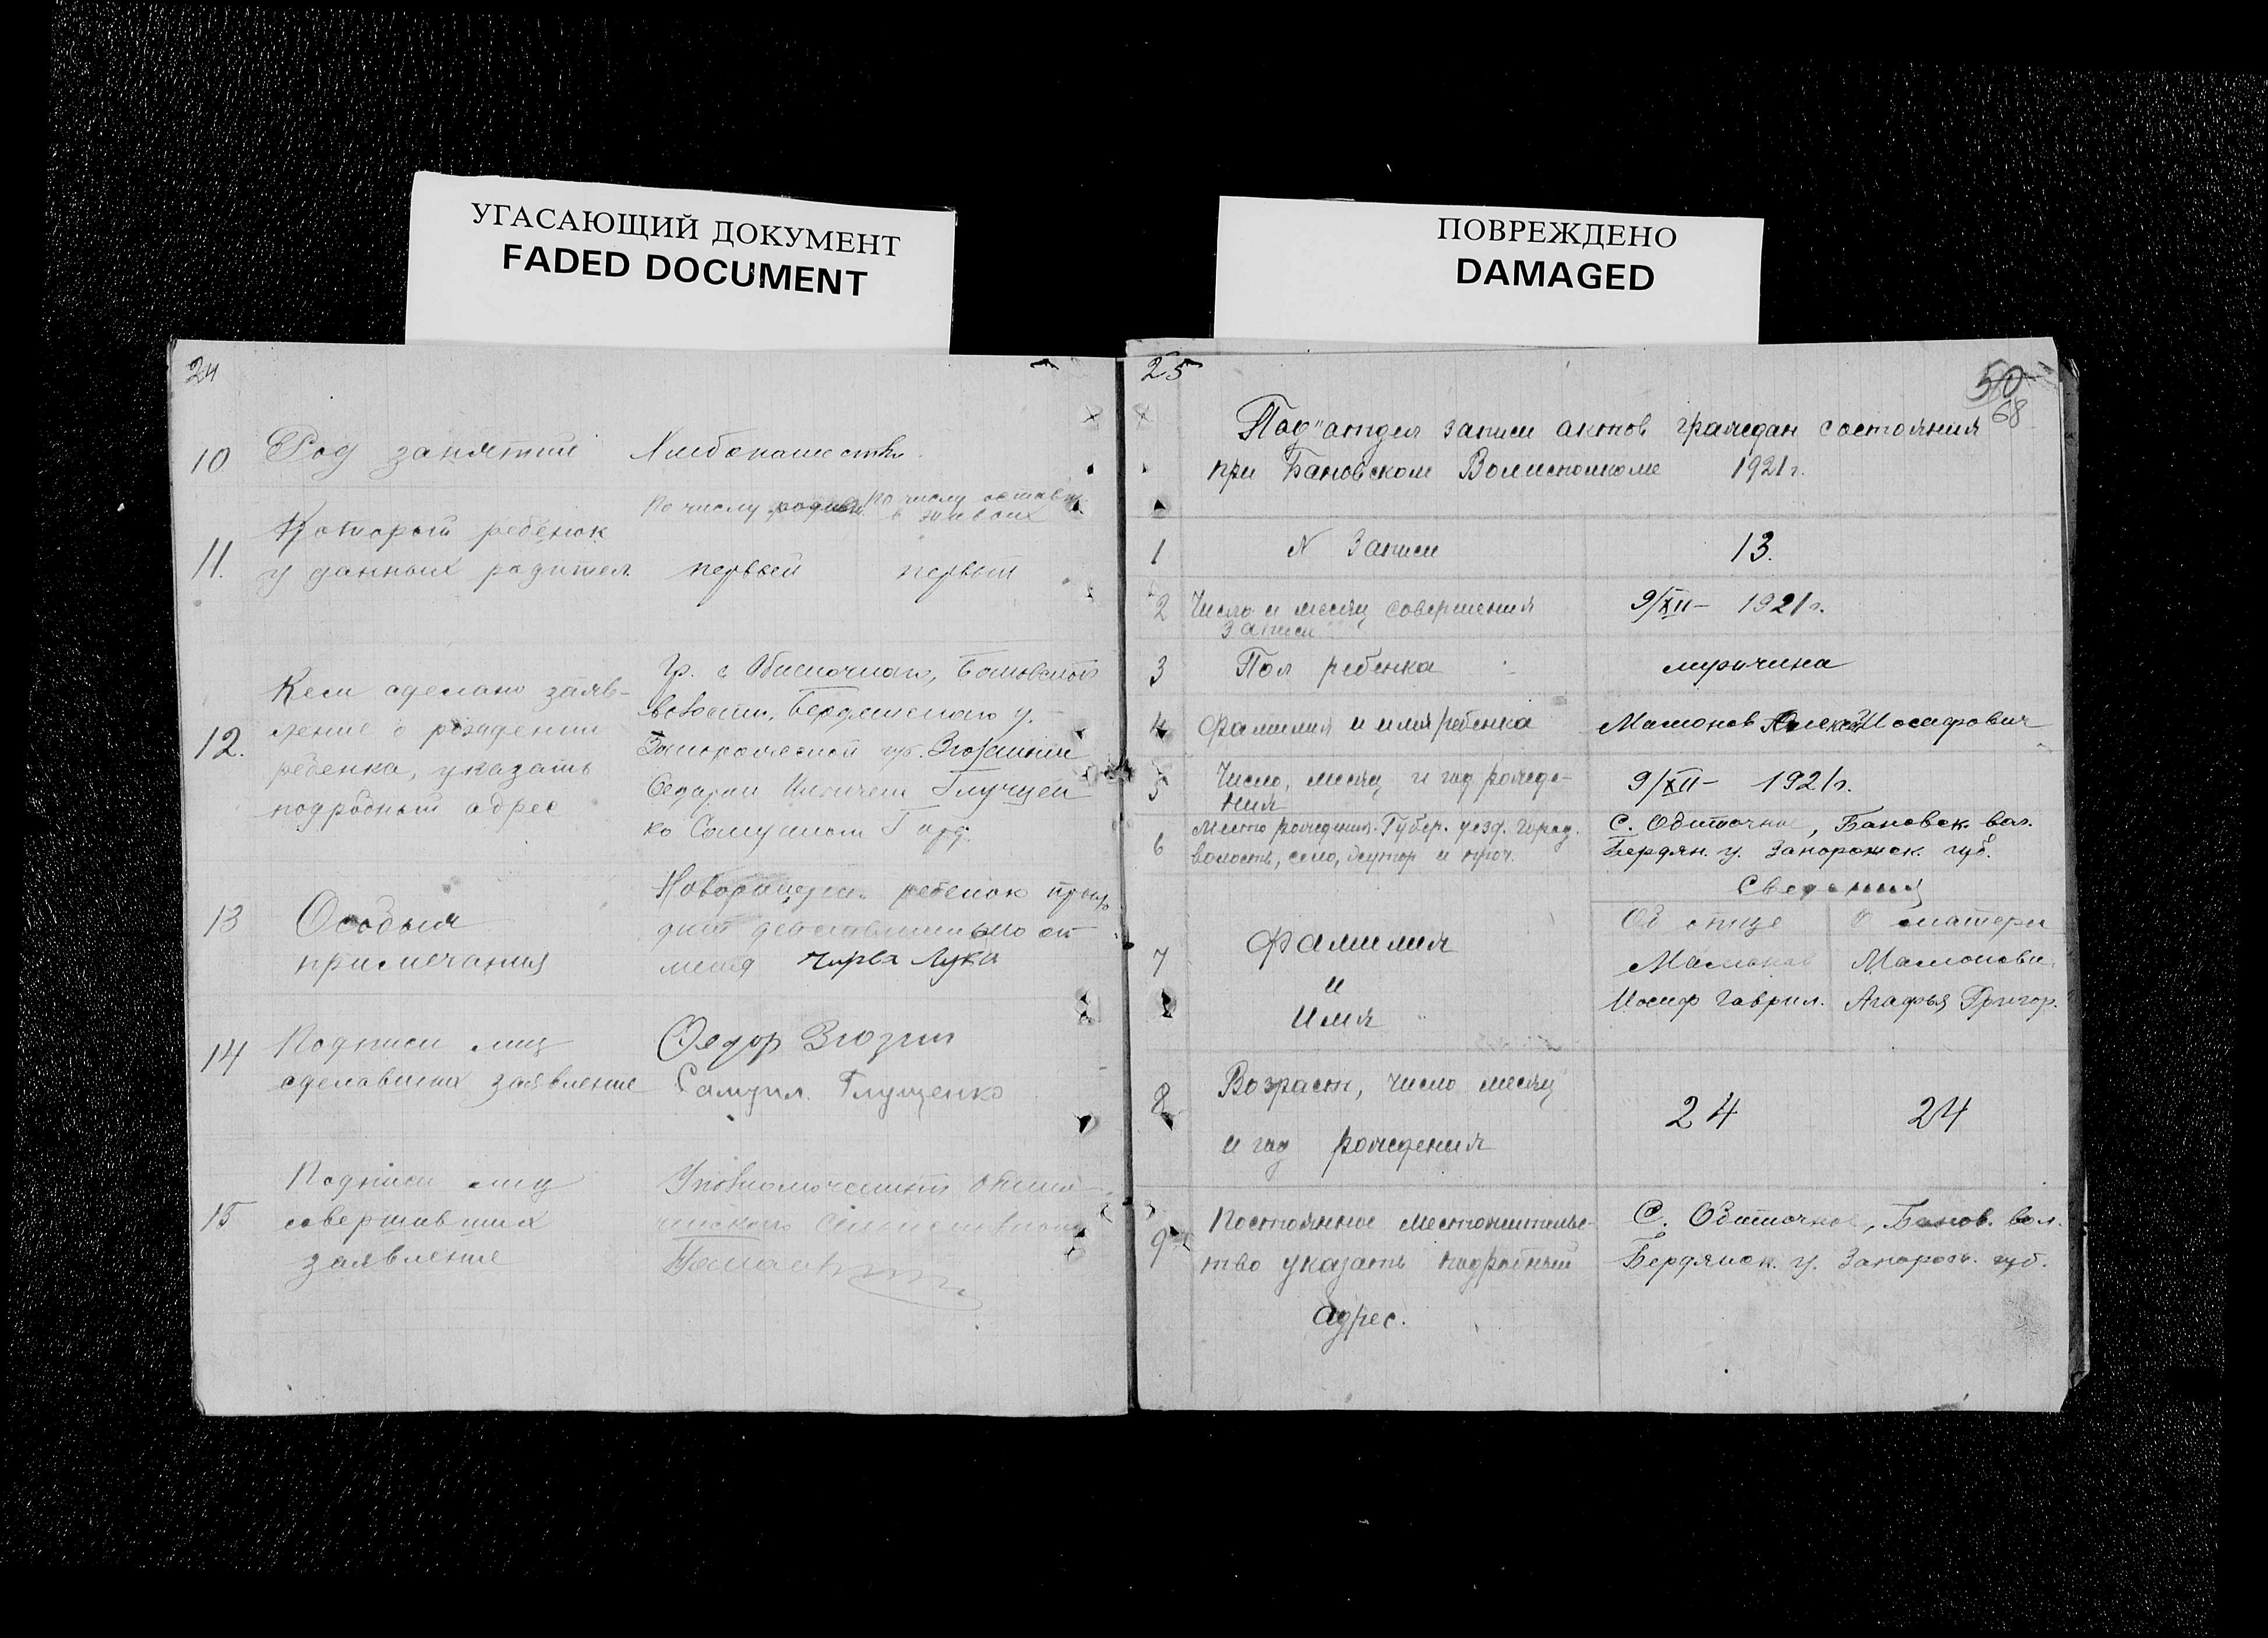 УГАСАЮЩИЙ ДОКУМЕНТ
FADED DOCUMENT
24
10 Род занятий Хлебопашество
По числу родив. По числу оставш. в живых
Который ребенок
11. у данных родител. первый первый
Гр. с Обиточного, Бановской
Кем сделано заяв-
волости, Бердянского у.
12. ление о рождении
Запорожской губ. Зюзиным
ребенка, указать
Федором
подробный адрес
Новорожден. ребенок
13 Особыя
действительно от
примечания
меня Чирва Лука
14 Подписи лиц Федор Зюзин
сделавших заявление Самуил Глущенко
Подписи лиц Уполномоченный
15 совершивших
заявление
ПОВРЕЖДЕНО
DAMAGED
25
50
68
Под"отдел записи актов граждан состояния
при Бановском Волисполкоме 1921 г.
1 N Записи 13.
2 Число и месяц совершения 9/XII- 1921 г.
записи
3 Пол ребенка мужчина
4 Фамилия и имя ребенка Мамонов Алексей Иосифович
5 Число, месяц и год рожде- 9/XII- 1921 г.
ния
Место рождения. Губер. уезд. город. С. Обиточное, Бановск. вол.
6 волость, село, хутор и проч. Бердян. у. Запорожск. губ.
Сведения
Об отце О матери
7 Фамилия Мамонов Мамонова
и
Имя Иосиф Гаврил. Агафья Григор.
8 Возраст, число месяц 24 24
и год рождения
Постоянное местожительс- С. Обиточное, Банов. вол.
9 тво указать подробный Бердянск. у. Запорож. губ.
адрес.